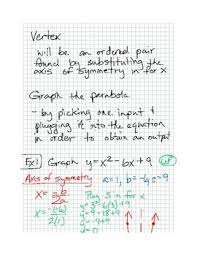 Vertex
will be an ordered pair
found by substituting the
axis of symmetry in for x
Graph the parabola
- by picking one input &
plugging it into the equation
in order to obtain an output
Ex1 Graph y=x²-6x+9 up
Axis of symmetry a=1, b=-6, c=9
x=-b/2a Plug 3 in for x
y=3²-6(3)+9
x=-(-6)/2(1) y=9-18+9
y=-9+9
y=0